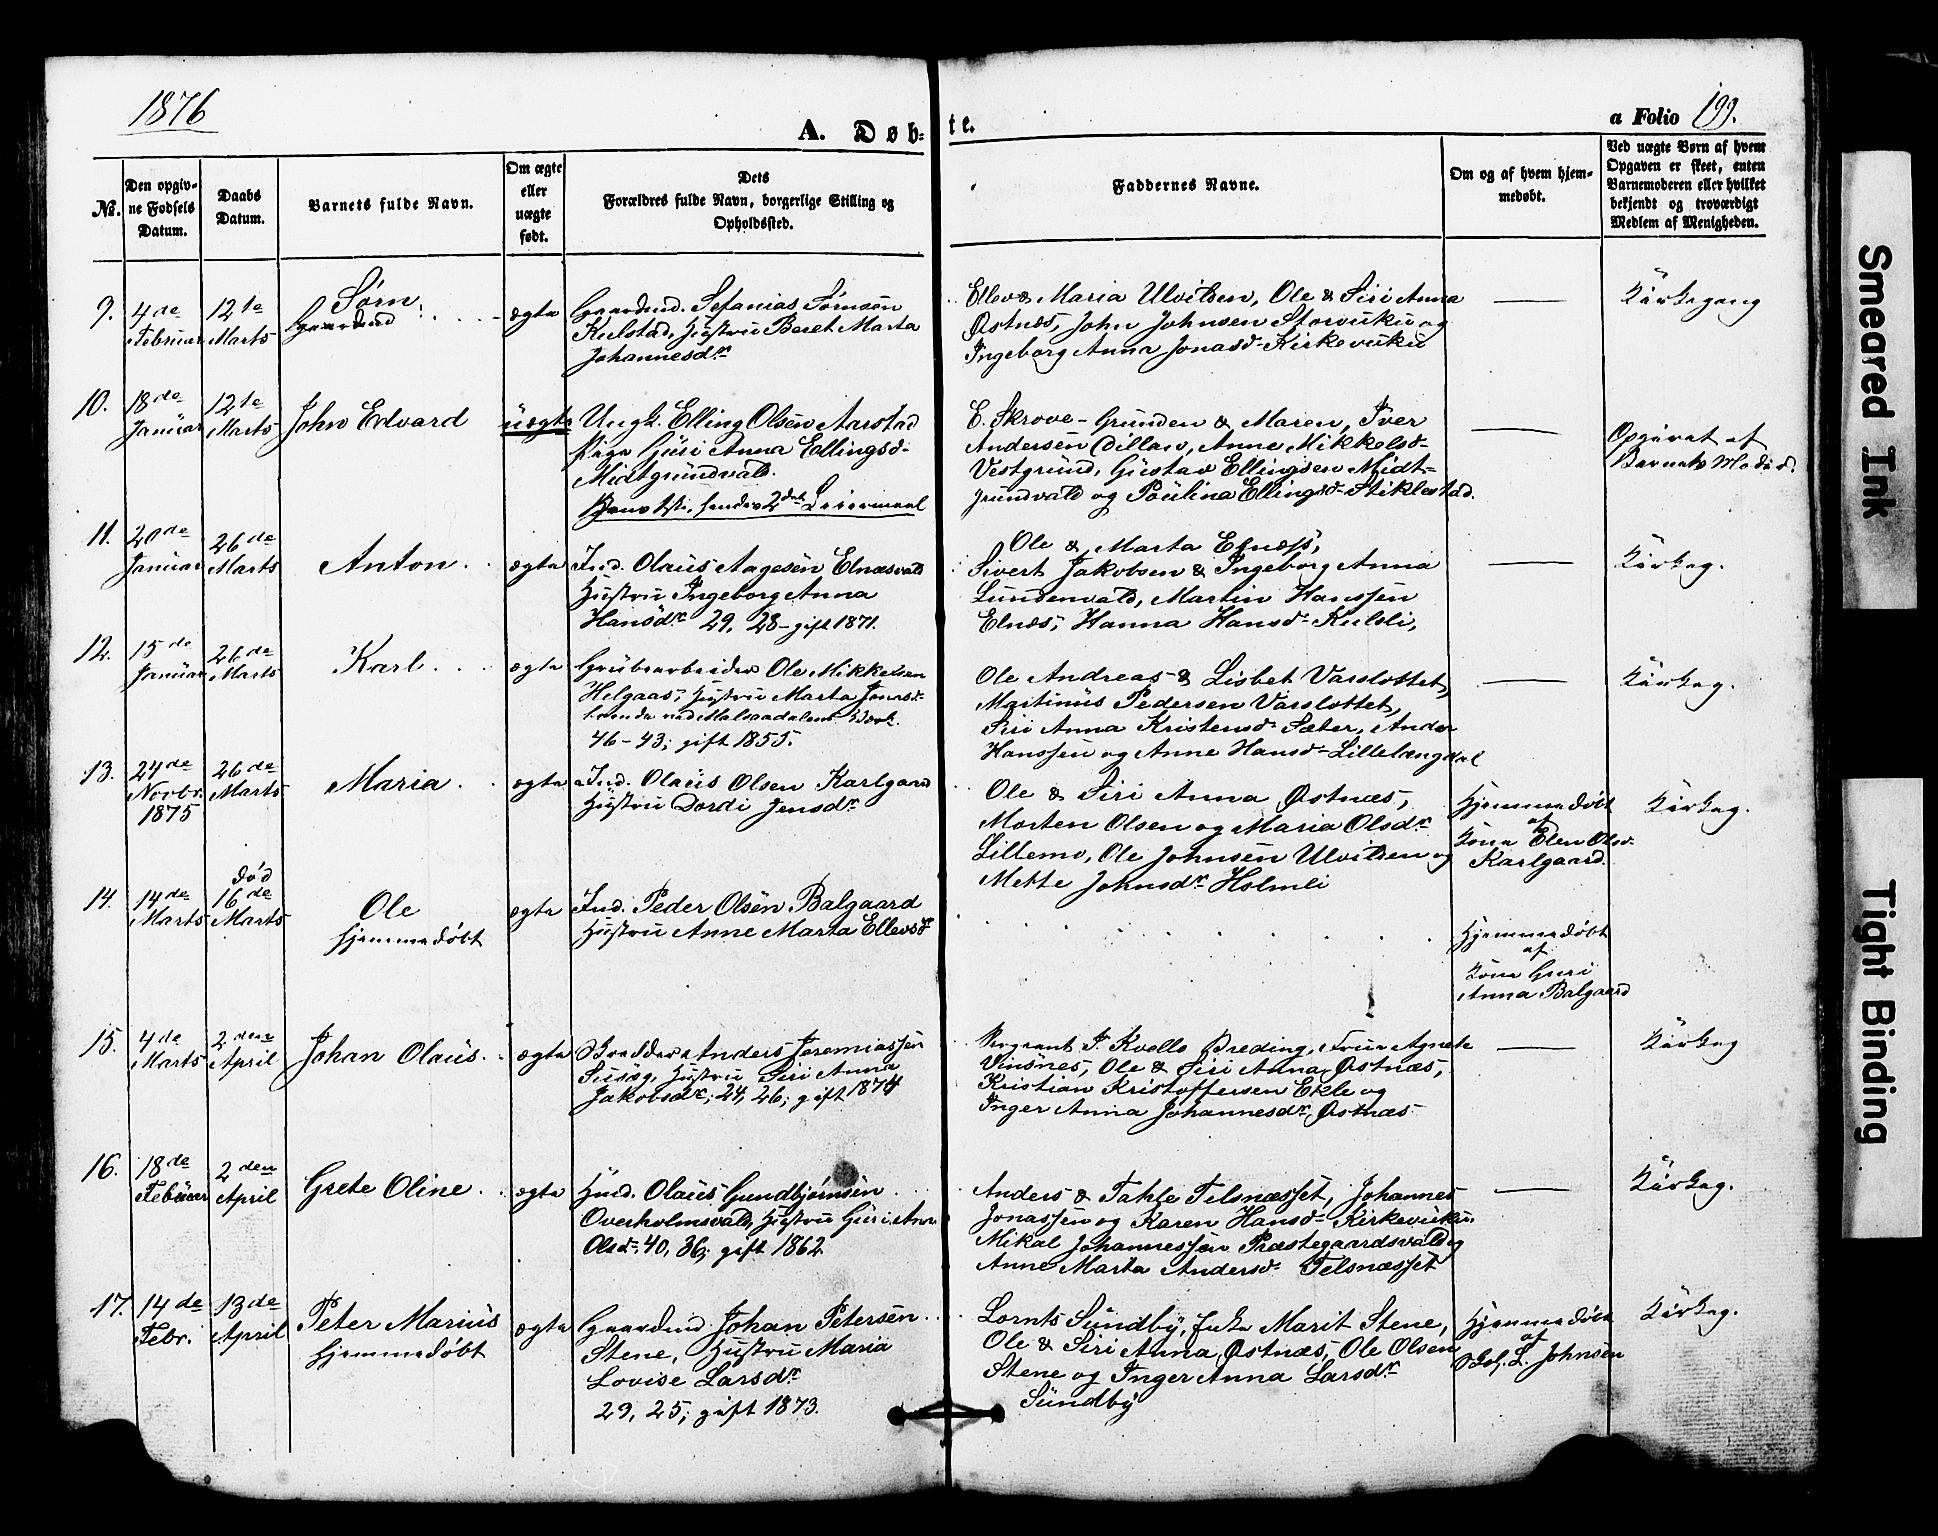 1876
A. Døbte.
a Folio 199.
No.
Den opgiv-
ne Fødsels
Datum.
Daabs
Datum.
Barnets fulde Navn.
Om ægte
eller
uægte
født.
Dets
Forældres fulde Navn, borgerlige Stilling og
Opholdssted.
Faddernes Navne.
Om og af hvem hjem-
medøbt.
Ved uægte Børn af hvem
Opgaven er skeet, enten
Barnemoderen eller hvilket
bekjendt og troværdigt
Medlem af Menigheden.
9.
4de
Februar
12te
Marts
Sørn
Gaardmd
ægte
Gaardmd. Sefanias Sørnsen
Kulstad, Hustru Beret Marta
Johannesdr
Ellev & Maria Ulvilden, Ole & Siri Anna
Østnæs, John Johnsen Storvuku og
Ingeborg Anna Jonasd. Kirkevuku
Kirkegang
10.
18de
Januar
12te
Marts
John Edvard
uægte
Ungk. Elling Olsen Aarstad
Pige Guri Anna Ellingsd.
Midtgrundvald.
hendes 2det Leiermaal
E. Skrove-Grunden & Maren, Iver
Andersen Dillan, Anne Mikkelsd.
Vestgrund, Gustav Ellingsen Midt-
grundvald og Paulina Ellingsd. Stiklestad.
Opgivet af
Barnets Moder.
11.
20de
Januar
26de
Marts
Anton
ægte
Ind. Olaus Aagesen Elnæsvald
Hustru Ingeborg Anna
Hansdr. 29, 28 - gift 1871.
Ole & Marta Elnæs,
Sivert Jakobsen & Ingeborg Anna
Lundenvald, Martin Hanssen
Elnæs, Hanna Hansd. Kulsli,
Kirkeg.
12.
15de
Januar
26de
Marts
Karl
ægte
Grubearbeider Ole Mikkelsen
Helgaas, Hustru Marta Jonasd.
boende ved Malsaadalens Værk.
46-43; gift 1855.
Ole Andreas & Lisbet Varslottet,
Martinus Pedersen Varslottet,
Siri Anna Kristensd. Sæter, Ander
Hanssen og Anne Hansd. Lillelængdal
Kirkeg.
13.
24de
Novbr.
1875
26de
Marts
Maria
ægte
Ind. Olaus Olsen Karlgaard
Hustru Dordi Jensdr
Ole & Siri Anna Østnæs,
Morten Olsen og Maria Olsdr
Lillemo, Ole Johnsen Ulvilden og
Mette Johnsdr Holmli
Hjemmedøbt
af
Kona Elen Olsd.
Karlgaard.
Kirkeg.
14.
14de
Marts
død
16de
Marts
Ole
hjemmedøbt
ægte
Ind. Peder Olsen Balgaard
Hustru Anne Marta Ellevsd.
Hjemmedøbt
af
Kona Guri
Anna Balgaard
15.
4de
Marts
2den
April
Johan Olaus
ægte
Anders Jeremiassen
Susæg, Hustru Siri Anna
Jakobsdr; 24, 26; gift 1874
Sergeant P. Kvello Breding, Frue Agnete
Vinsnes, Ole & Siri Anna Østnæs,
Kristian Kristoffersen Ekle og
Inger Anna Johannesdr Østnæs
Kirkeg
16.
18de
Februar
2den
April
Grete Oline
ægte
Hmd. Olaus Gundbjørnsen
Overholmsvald, Hustru Guri Anna
Olsd. 40, 36; gift 1862
Anders & Tahle Telsnæsset, Johannes
Jonassen og Karen Hansd. Kirkevuku,
Mikal Johannessen Præstegaardsvald og
Anne Marta Andersd. Telsnæsset
Kirkeg.
17.
14de
Febr.
13de
April
Peter Marius
hjemmedøbt
ægte
Gaardmd Johan Petersen
Stene, Hustru Maria
Lovise Larsdr
29, 25; gift 1873.
Lornts Sundby, Enke Marit Stene,
Ole & Siri Anna Østnæs, Ole Olsen
Stene og Inger Anna Larsdr
Sundby
Hjemmedøbt
af
L. Johnsen
Kirkeg.
Smeared Ink
Tight Binding